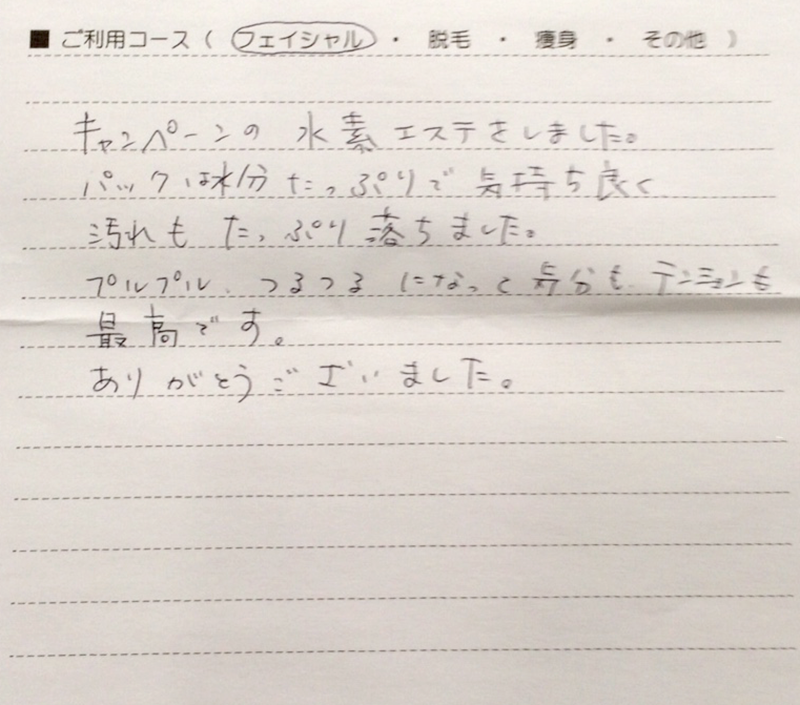 ■ ご利用コース（ フェイシャル ・ 脱毛 ・ 痩身 ・ その他 ）
キャンペーンの 水素エステをしました。
パックは水分たっぷりで気持ち良く
汚れもたっぷり落ちました。
プルプル、つるつるになって気分も、テンションも
最高です。
ありがとうございました。